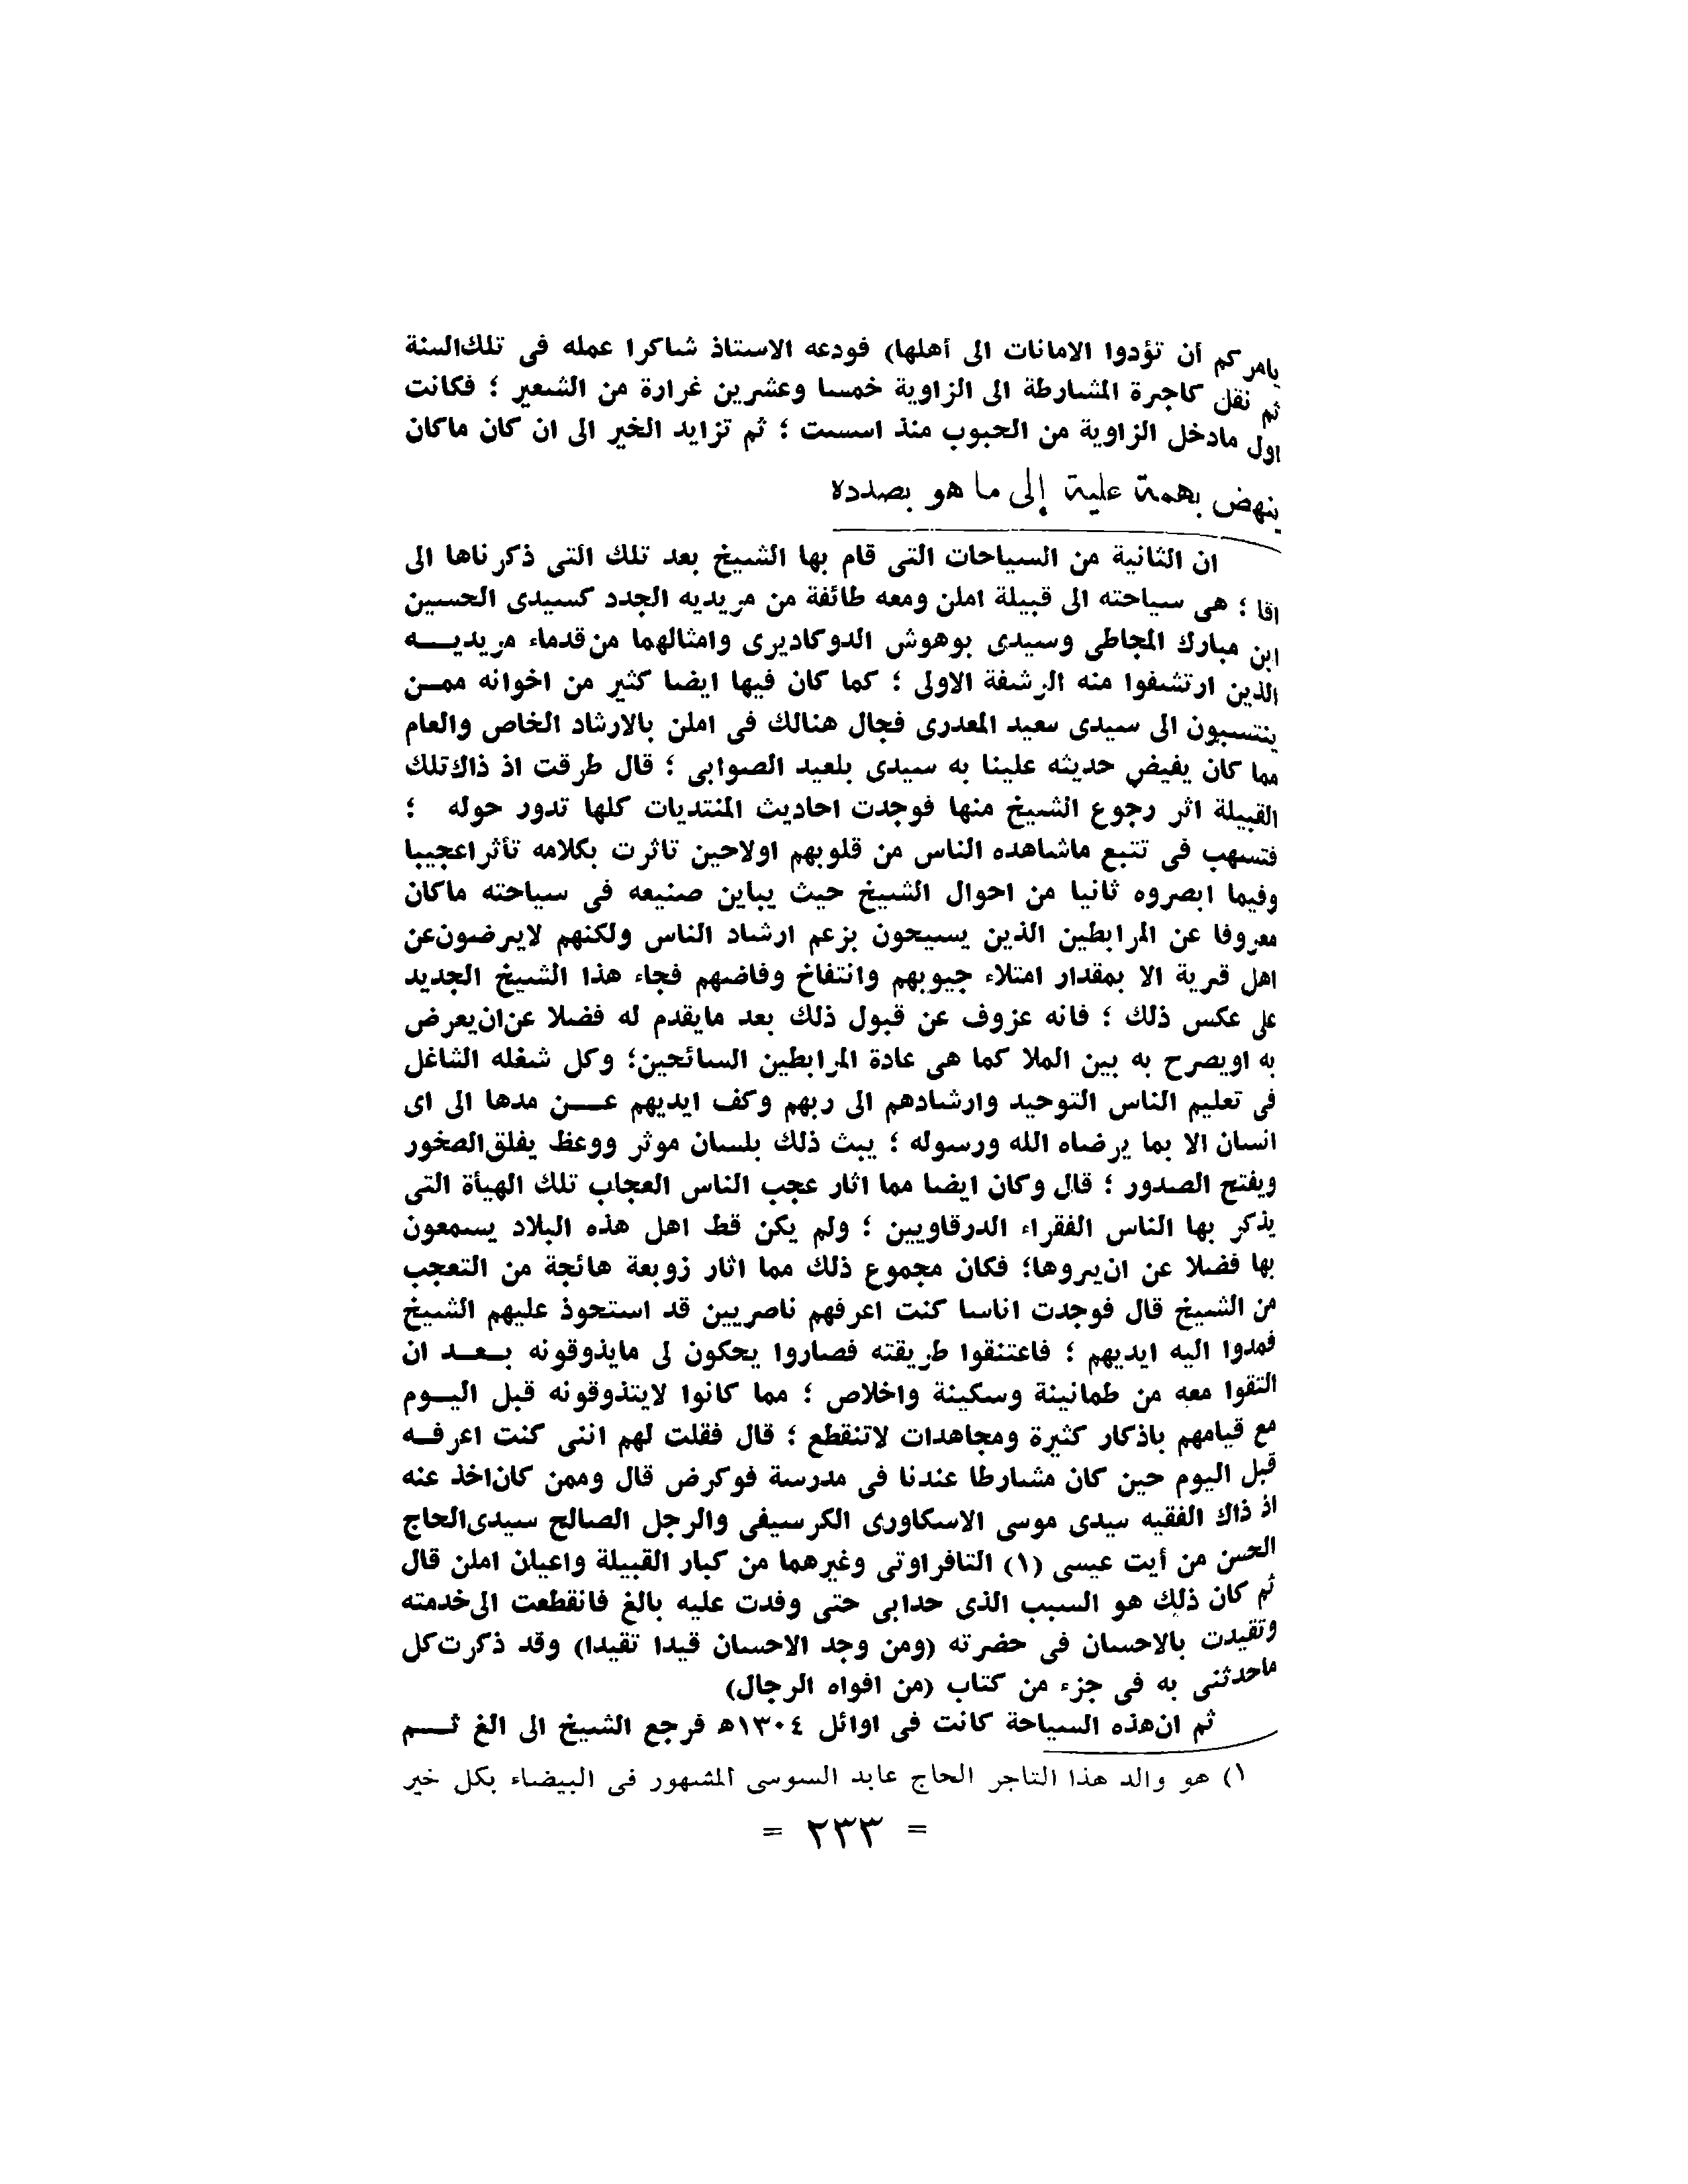 يامركم أن تؤدوا الامانات الى أهلها) فودعه الاستاذ شاكرا عمله فى تلك السنة
ثم نقل كاجرة المشارطة الى الزاوية خمسا وعشرين غرارة من الشعير ؛ فكانت
اول مادخل الزاوية من الحبوب منذ اسست ؛ ثم تزايد الخير الى ان كان ماكان
ينهض بهمة علية إلى ما هو بصدده
ان الثانية من السياحات التى قام بها الشيخ بعد تلك التى ذكرناها الى
اقا ؛ هى سياحته الى قبيلة املن ومعه طائفة من مريديه الجدد كسيدى الحسين
ابن مبارك المجاطى وسيدى بوهوش الدوكاديرى وامثالهما من قدماء مريديـــه
الذين ارتشفوا منه الرشفة الاولى ؛ كما كان فيها ايضا كثير من اخوانه ممـن
ينتسبون الى سيدى سعيد المعدرى فجال هنالك فى املن بالارشاد الخاص والعام
مما كان يفيض حديثه علينا به سيدى بلعيد الصوابى ؛ قال طرقت اذ ذاك تلك
القبيلة اثر رجوع الشيخ منها فوجدت احاديث المنتديات كلها تدور حوله ؛
فتسهب فى تتبع ماشاهده الناس من قلوبهم اولاحين تاثرت بكلامه تأثراعجيبا
وفيما ابصروه ثانيا من احوال الشيخ حيث يباين صنيعه فى سياحته ماكان
معروفا عن المرابطين الذين يسيحون بزعم ارشاد الناس ولكنهم لايرضون عن
اهل قرية الا بمقدار امتلاء جيوبهم وانتفاخ وفاضهم فجاء هذا الشيخ الجديد
على عكس ذلك ؛ فانه عزوف عن قبول ذلك بعد مايقدم له فضلا عن ان يعرض
به اويصرح به بين الملا كما هى عادة المرابطين السائحين؛ وكل شغله الشاغل
فى تعليم الناس التوحيد وارشادهم الى ربهم وكف ايديهم عـــن مدها الى اى
انسان الا بما يرضاه الله ورسوله ؛ يبث ذلك بلسان موثر ووعظ يفلق الصخور
ويفتح الصدور ؛ قال وكان ايضا مما اثار عجب الناس العجاب تلك الهيأة التى
يذكر بها الناس الفقراء الدرقاويين ؛ ولم يكن قط اهل هذه البلاد يسمعون
بها فضلا عن ان يروها؛ فكان مجموع ذلك مما اثار زوبعة هائجة من التعجب
من الشيخ قال فوجدت اناسا كنت اعرفهم ناصريين قد استحوذ عليهم الشيخ
فمدوا اليه ايديهم ؛ فاعتنقوا طريقته فصاروا يحكون لى مايذوقونه بـعـد ان
التقوا معه من طمانينة وسكينة واخلاص ؛ مما كانوا لايتذوقونه قبل اليـوم
مع قيامهم باذكار كثيرة ومجاهدات لاتنقطع ؛ قال فقلت لهم اننى كنت اعرفـه
قبل اليوم حين كان مشارطا عندنا فى مدرسة فوكرض قال وممن كان اخذ عنه
اذ ذاك الفقيه سيدى موسى الاسكاورى الكرسيفى والرجل الصالح سيدى الحاج
الحسن من أيت عيسى (١) التافراوتى وغيرهما من كبار القبيلة واعيان املن قال
ثم كان ذلك هو السبب الذى حدابى حتى وفدت عليه بالغ فانقطعت الى خدمته
وتقيدت بالاحسان فى حضرته (ومن وجد الاحسان قيدا تقيدا) وقد ذكرت كل
ماحدثنى به فى جزء من كتاب (من افواه الرجال)
ثم ان هذه السياحة كانت فى اوائل ١٣٠٤ه فرجع الشيخ الى الغ ثـــم
١) هو والد هذا التاجر الحاج عابد السوسى المشهور فى البيضاء بكل خير
= ٢٣٣ =